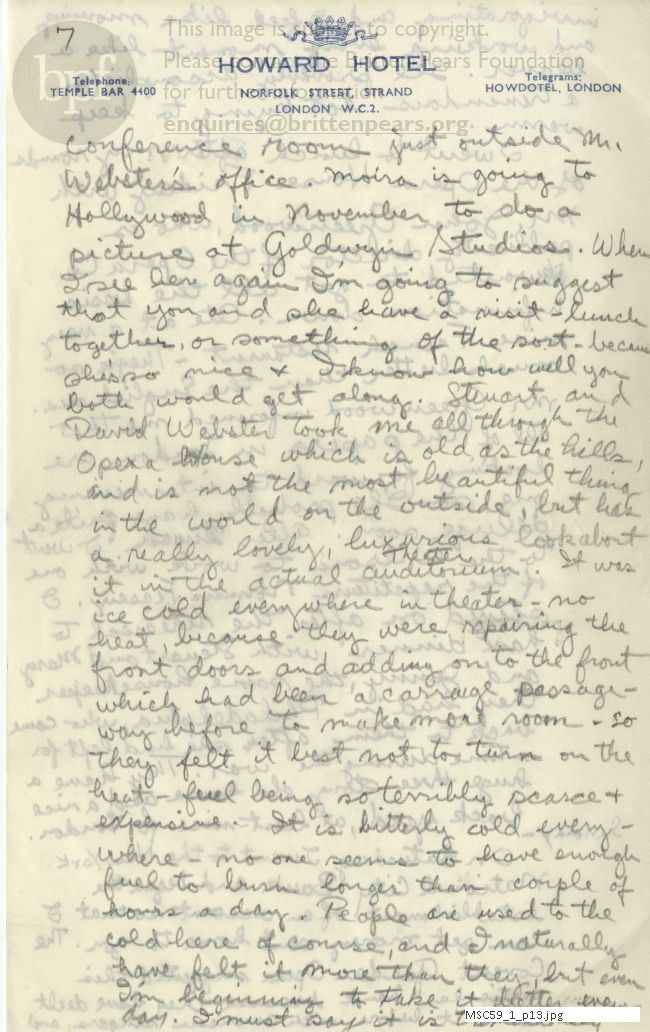 7
This image is subject to copyright.
Please
Pears Foundation
for further
enquiries@brittenpears.org
bpf
HOWARD HOTEL
Telephone:
TEMPLE BAR 4400
NORFOLK STREET, STRAND
LONDON W.C.2.
Telegrams:
HOWDOTEL, LONDON
conference room just outside Mr.
Webster's office. Moira is going to
Hollywood in November to do a
picture at Goldwyn Studios. When
I see her again I'm going to suggest
that you and she have a visit - lunch
together, or something of the sort - because
she's so nice & I know how well you
both would get along. Steuart and
David Webster took me all through the
Opera House which is old as the hills,
and is not the most beautiful thing
in the world on the outside, but has
a really lovely, luxurious look about
it in the actual auditorium. It was
Theater
ice cold everywhere in theater - no
heat, because they were repairing the
front doors and adding on to the front
which had been a carraige passage-
way before to make more room - so
they felt it best not to turn on the
heat - fuel being so terribly scarce &
expensive. It is bitterly cold every-
where - no one seems to have enough
fuel to burn longer than couple of
hours a day. People are used to the
cold here of course, and I naturally
have felt it more than they, but even
I'm beginning to take it better every
day. I must say it is
MSC59_1_p13.jpg